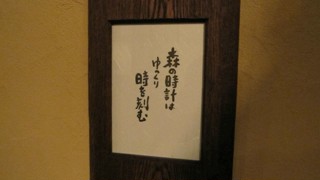 森の時計は
ゆっくり
時を刻む